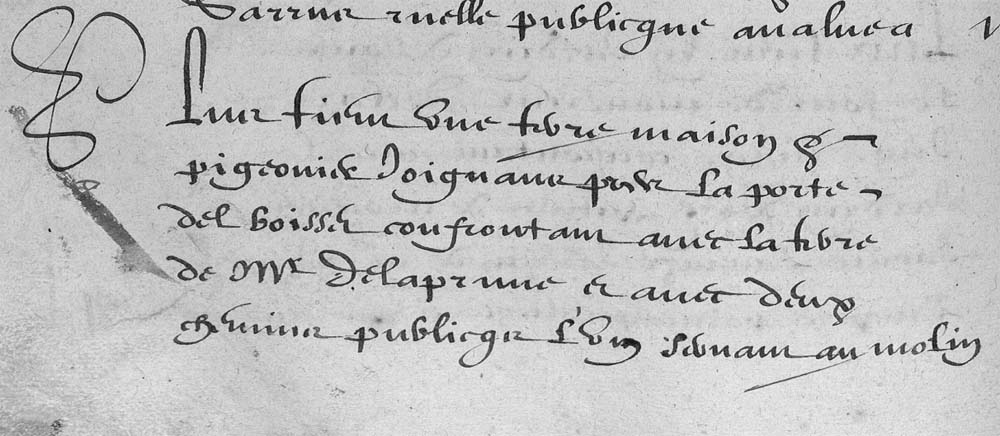 Barrue ruelle publicque avaluea v
Plus tient une terre maison &
pigeonier Joignant pres la porte
del boisset confrontant avec la terre
de Mre Delaprune et avec deux
chemins publicqz l'un servant au molin